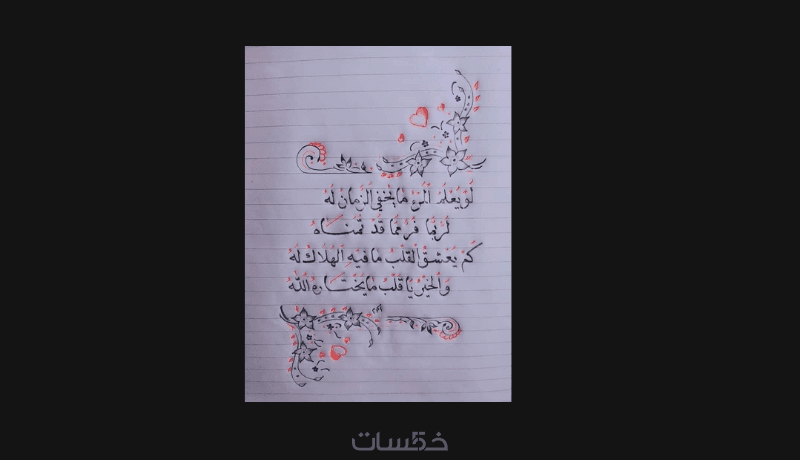 لَو يَعْلَمُ الْمَرْءُ مَا يُخْفِي الزَّمَانُ لَهُ
لَرُبَّمَا فَرَّ مِمَّا قَدْ تَمَنَّاهُ
كَمْ يَعْشَقُ الْقَلْبُ مَا فِيهِ الْهَلَاكُ لَهُ
وَالْخَيْرُ يَا قَلْبُ مَا يَخْتَارُهُ اللّٰهُ
خمسات